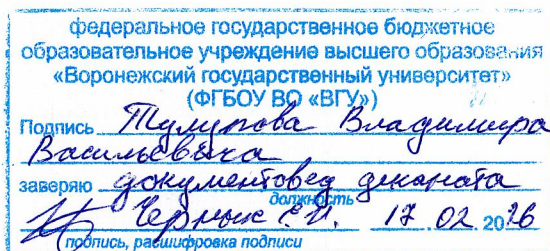 федеральное государственное бюджетное
образовательное учреждение высшего образования
«Воронежский государственный университет»
(ФГБОУ ВО «ВГУ»)
Подпись Тулупова Владимира
Васильевича
заверяю документовед деканата
должность
Черных Е.И. 17.02.2026
подпись, расшифровка подписи